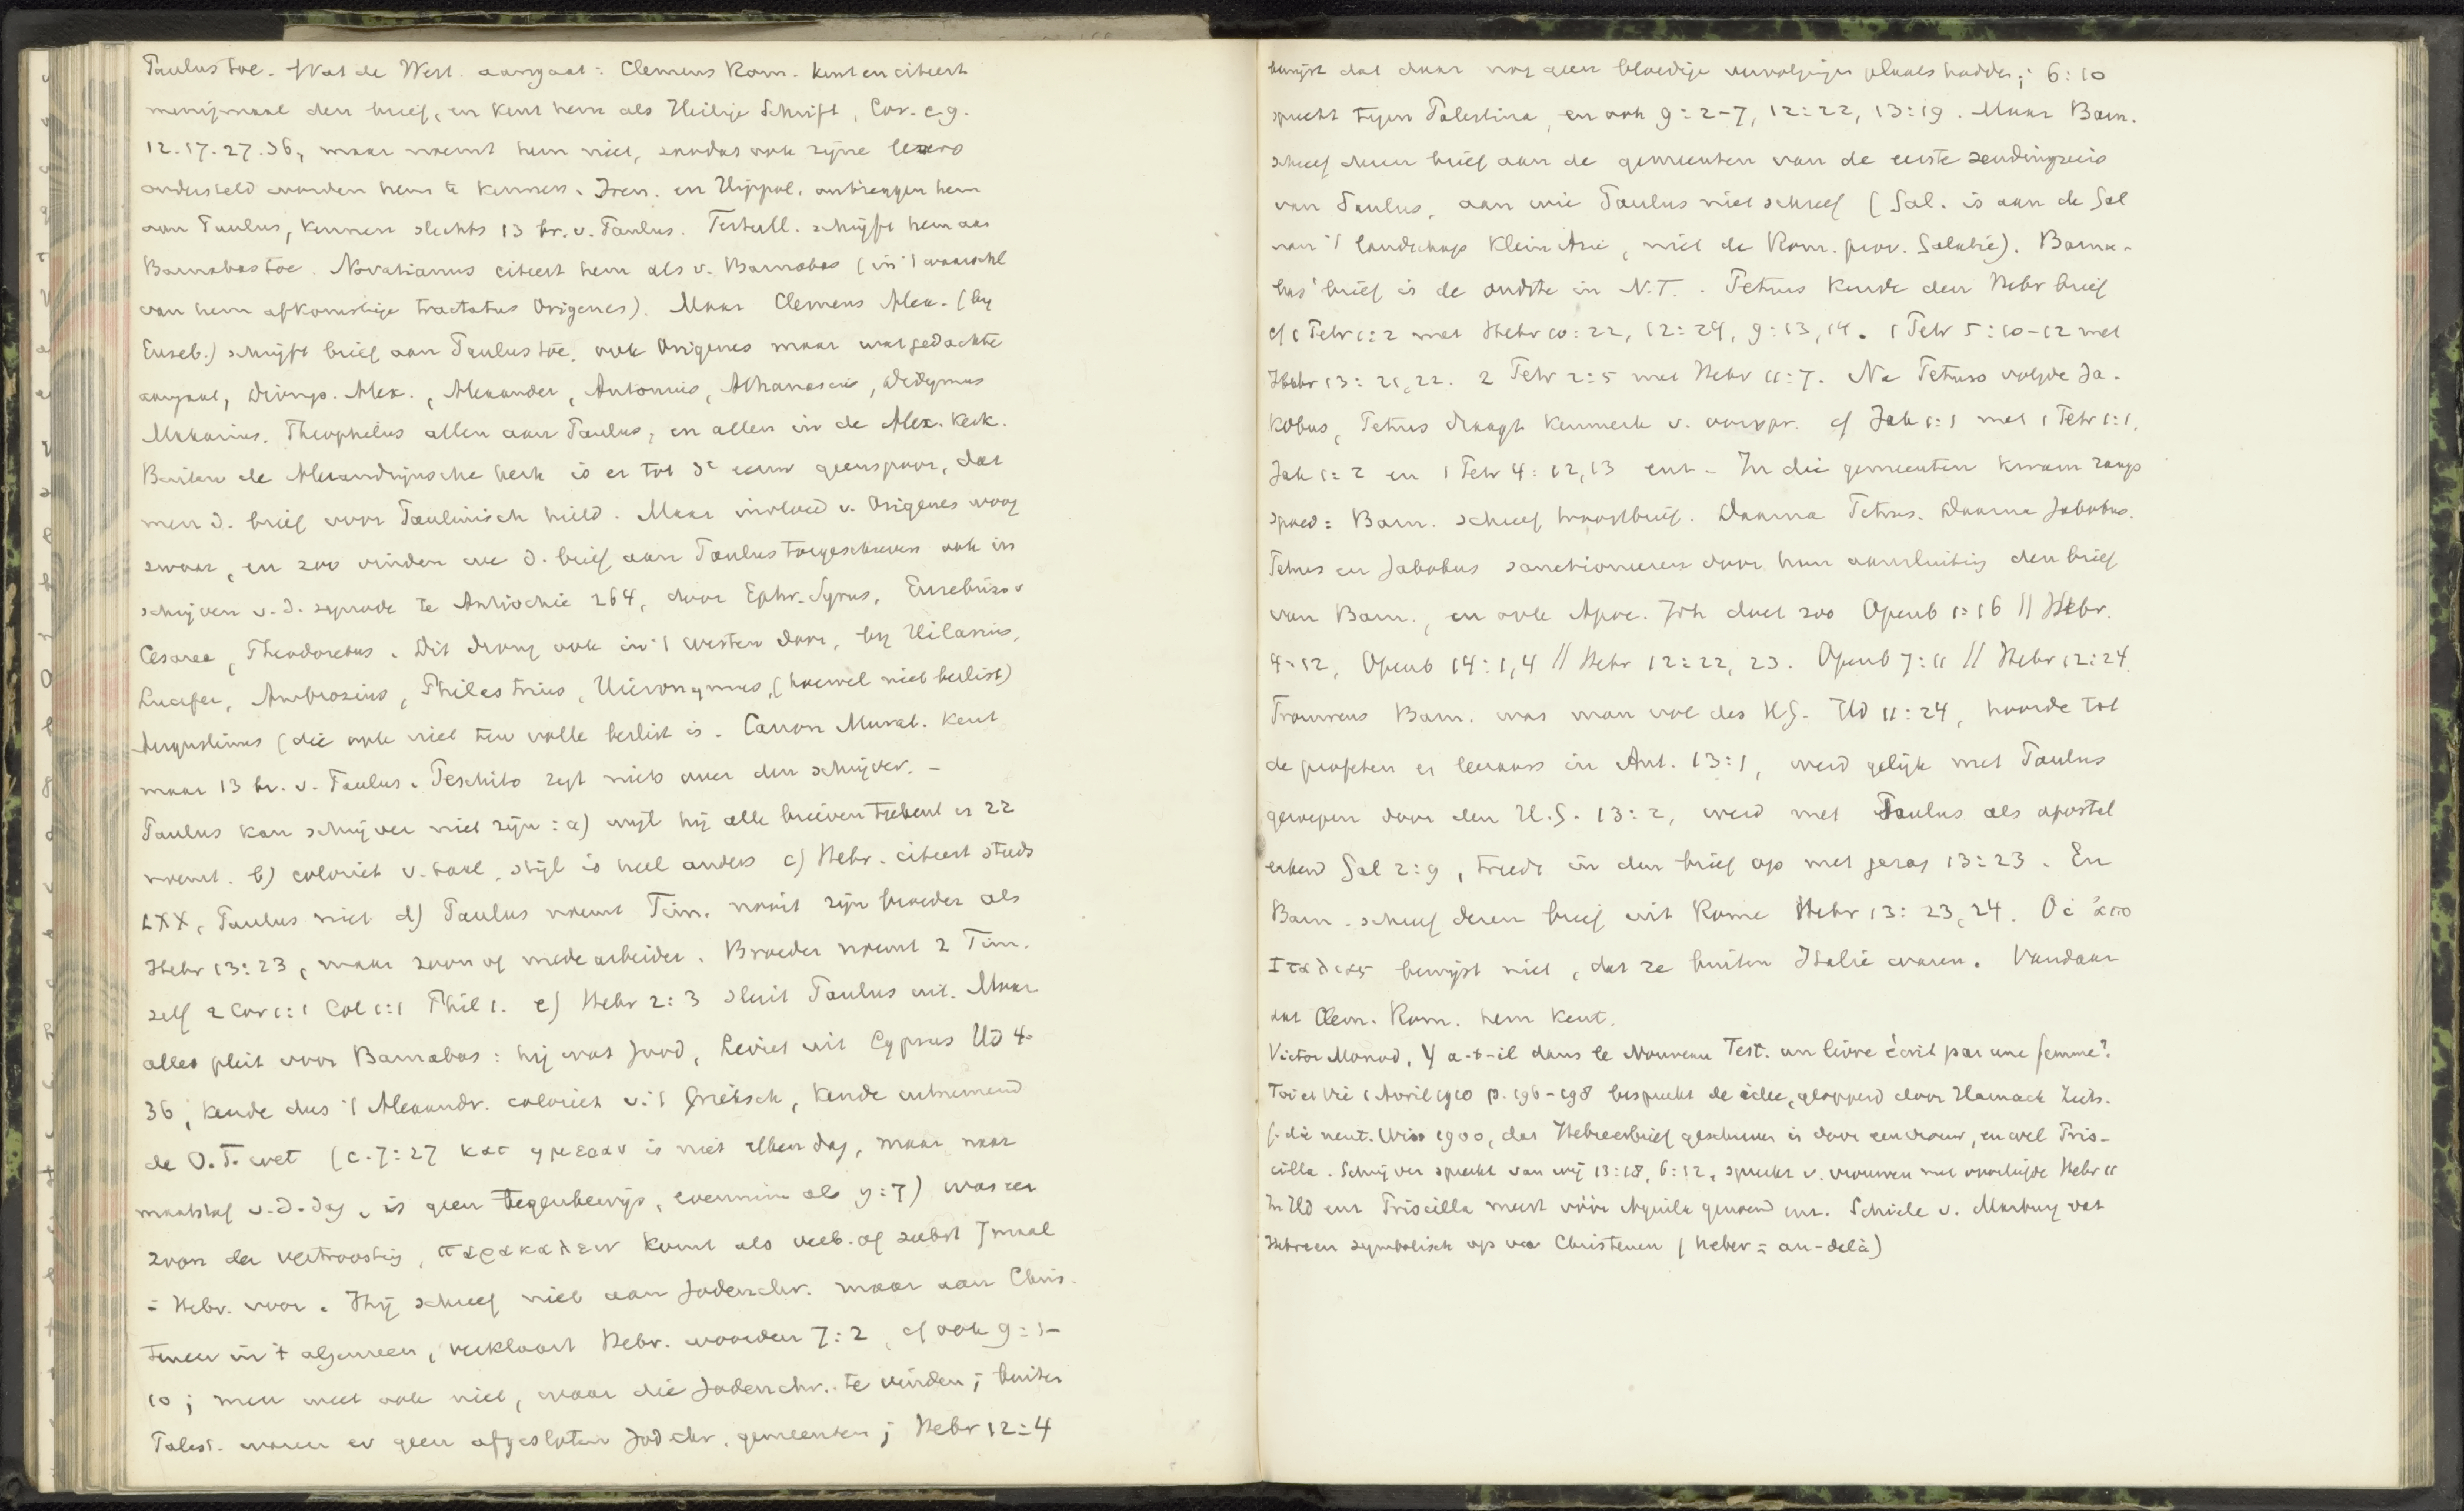 Paulus toe. Wat de West. aangaat: Clemens Rom. kent en citeert
menigmaal den brief, en kent hem als Heilige Schrift, Cor. c. 9.
12. 17. 27. 36, maar noemt hem niet, zoodat ook zijne lezers
ondersteld worden hem te kennen. Iren. en Hippol. ontzeggen hem
aan Paulus, kennen slechts 13 br. v. Paulus. Tertull. schrijft hem aan
Barnabas toe. Novatianus citeert hem als v. Barnabas (in 't waarschl
van hem afkomstige tractatus Origenes). Maar Clemens Alex. (by
Euseb.) schrijft brief aan Paulus toe, ook Origenes maar wat gedachte
aangaat, Dionys. Alex., Alexander, Antonius, Athanasius, Didymus
Makarius, Theophilus allen aan Paulus, en allen in de Alex. Kerk.
Buiten de Alexandrijnsche kerk is er tot 3e eeuw geen spoor, dat
men d. brief voor Paulinisch hield. Maar invloed v. Origenes woog
zwaar, en zoo vinden we d. brief aan Paulus toegeschreven ook in
schrijven v. d. synode te Antiochie 264, door Ephr. Syrus, Eusebius v
Cesarea, Theodoretus. Dit drong ook in 't westen door, by Hilarius,
Lucifer, Ambrosius, Philastrius, Hieronymus, (hoewel niet beslist)
Augustinus (die ook niet ten volle beslist is. Canon Murat. kent
maar 13 br. v. Paulus. Peschito zegt niets over den schrijver. –
Paulus kan schrijver niet zijn: a) wijl hij alle brieven teekent en zz
noemt. b) coloriet v. taal, stijl is heel anders c) Hebr. citeert steeds
LXX, Paulus niet d) Paulus noemt Tim. nooit zijn broeder als
Hebr 13:23, maar zoon of medearbeider. Broeder noemt 2 Tim.
zelf 2 Cor 1:1 Col 1:1 Phil 1. e) Hebr 2:3 sluit Paulus uit. Maar
alles pleit voor Barnabas: hij was Jood, Leviet uit Cyprus Hd 4:
36, kende dus 't Alexandr. coloriet v. 't Grieksch, kende uitnemend
de O.T. wet (c. 7:27 κατ ημεραν is niet elken dag, maar naar
maatstaf v. d. dag, is geen tegenbewijs, evenmin als 9:7) was een
zoon der vertroosting, παρακαλειν komt als verb. of subst 7 maal
in Hebr. voor. Hij schreef niet aan Jodenchr. maar aan Chris-
tenen in 't algemeen, verklaart Hebr. woorden 7:2, cf ook 9:1-
10; men weet ook niet, waar die Jodenchr. te vinden; buiten
Palest. waren er geen afgesloten Jodchr. gemeenten; Hebr 12:4
bewijst dat daar nog geen bloedige vervolgingen plaats hadden; 6:10
spreekt tegen Palestina, en ook 9:2-7, 12:22, 13:19. Maar Barn.
schreef dezen brief aan de gemeenten van de eerste zendingsreis
van Paulus, aan wie Paulus niet schreef (Gal. is aan de Gal
van 't landschap Klein Azie, niet de Rom. prov. Galatië). Barna-
bas' brief is de oudste in N.T.. Petrus kende den Hebr brief
cf 1 Petr 1:2 met Hebr 10:22, 12:24, 9:13,14. 1 Petr 5:10-12 met
Hebr 13:21,22. 2 Petr 2:5 met Hebr 11:7. Na Petrus volgde Ja-
kobus, Petrus draagt kenmerk v. oorspr. cf Jak 1:1 met 1 Petr 1:1,
Jak 1:2 en 1 Petr 4:12,13 enz. In die gemeenten kwam
spoed: Barn. schreef troostbrief. Daarna Petrus. Daarna Jakobus.
Petrus en Jakobus sanctioneeren door hun aansluiting den brief
van Barn., en ook Apoc. Joh doet zoo Openb 1:16 // Hebr.
4:12, Openb 14:1,4 // Hebr 12:22, 23. Openb 7:11 // Hebr 12:24.
Trouwens Barn. was man vol des H.G. Hd 11:24, hoorde tot
de profeten en leeraars in Ant. 13:1, werd gelijk met Paulus
geroepen door den H.G. 13:2, werd met Paulus als apostel
erkend Gal 2:9, treedt in den brief op met gezag 13:23. En
Barn. schreef dezen brief uit Rome Hebr 13:23,24. Οἱ ἀπο
Ιταλιας bewijst niet, dat ze buiten Italië waren. Vandaar
dat Clem. Rom. hem kent.
Victor Monod, Y a-t-il dans le Nouveau Test. un livre écrit par une femme?
Foi et Vie 1 Avril 1910 p. 196-198 bespreekt de idee, geopperd door Harnack Zeits.
f. die neut. Wiss 1900, dat Hebreerbrief geschreven is door een vrouw, en wel Pris-
cilla. Schrijver spreekt van wij 13:18, 6:12, spreekt v. vrouwen met voorliefde Hebr 11
In Hd enz Priscilla meest vóór Aquila genoemd enz. Schiele v. Marburg vat
Hebreen symbolisch op van Christenen (heber = au-delà)